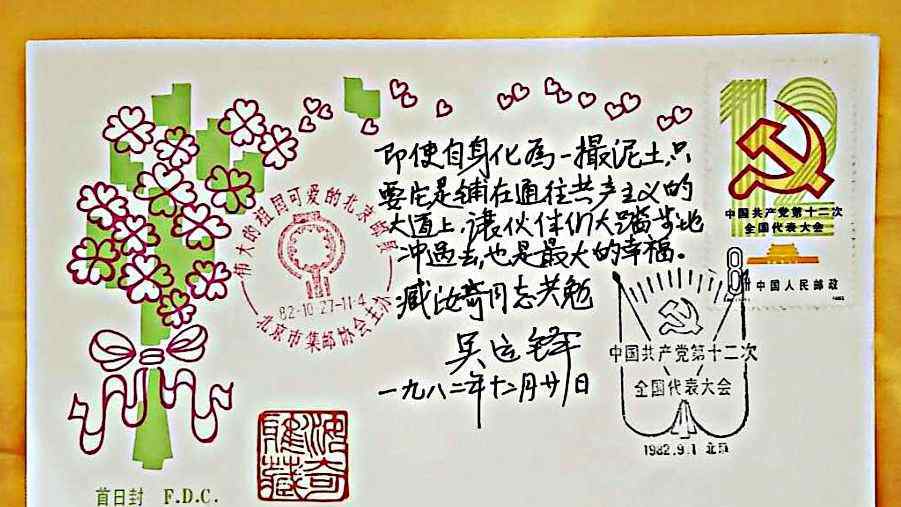 即使自身化為一撮泥土,只
要它是铺在通往共产主义的
大道上,讓伙伴们大踏步地
冲過去,也是最大的幸福。
臧汝奇同志共勉
吴运铎
一九八二年十二月廿一日
伟大的祖国可爱的北京邮展
82-10-27-11-4
北京市集邮协会主办
12
中国共产党第十二次
全国代表大会
中国人民邮政
中国共产党第十二次
全国代表大会
1982.9.1 北京
首日封 F.D.C.